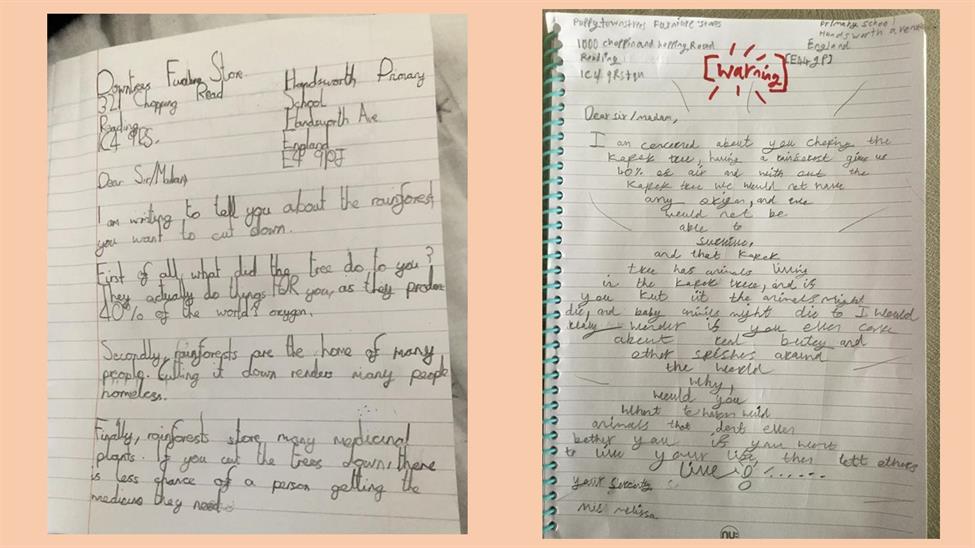 Downtrees Furniture Store
321 Chopping Road
Reading
IC4 9RS.
Handsworth Primary
School
Handsworth Ave
England
E4 9PJ
Dear Sir/Madam,
I am writing to tell you about the rainforest
you want to cut down.
First of all, what did the tree do to you?
They actually do things FOR you, as they produce
40% of the world's oxygen.
Secondly, rainforests are the home of many
people. Cutting it down renders many people
homeless.
Finally, rainforests store many medicinal
plants. If you cut the trees down, there
is less chance of a person getting the
medicine they need
1000 choppin and hopping Road
Reading
Primary School
Handsworth avenue
England
[Warning]
Dear Sir/madam,
I am concerned about you choping the
Kapok tree, having a rainforest give us
40% of air and with out the
Kapok tree we would not have
any oxigen, and we
would not be
able to
and that Kapok
tree has animals living
in the Kapok tree, and if
you kut it the animals might
die, and baby might die to I would
wonder if you even care
about and
other around
the world
why,
would you
whant to wild
animals that dont even
bother you if you want
to live your life then lett others
live
your
Miss melissa
nu: